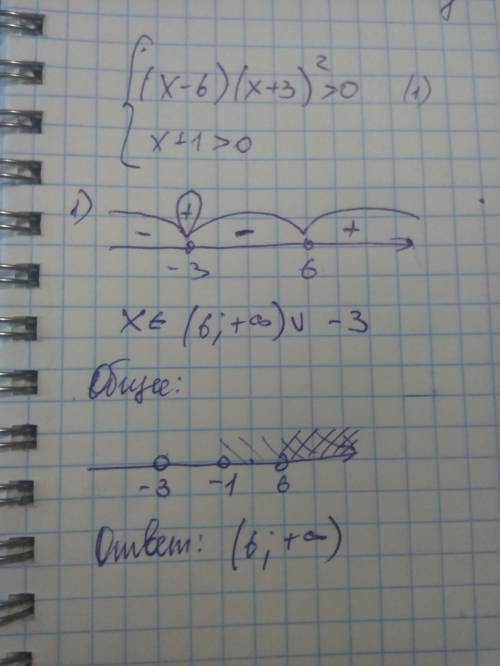 (x-6)(x+3)²>0 (1)
x+1>0
1)
- + - +
-3 6
x∈ (6;+∞)∪ -3
Общее:
-3 -1 6
Ответ: (6;+∞)